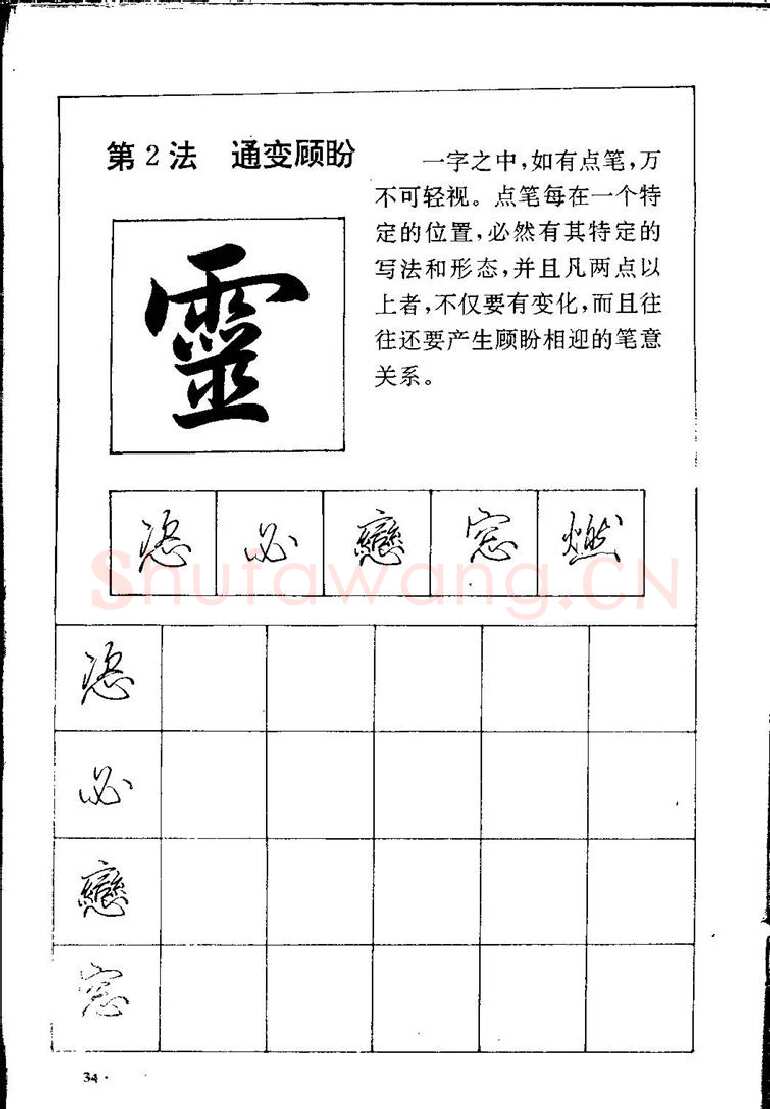 第2法 通变顾盼
一字之中,如有点笔,万
不可轻视。点笔每在一个特
定的位置,必然有其特定的
写法和形态,并且凡两点以
上者,不仅要有变化,而且往
往还要产生顾盼相迎的笔意
关系。
靈
必 戀 窓 燃
Shufawang.CN
必
戀
窓
34